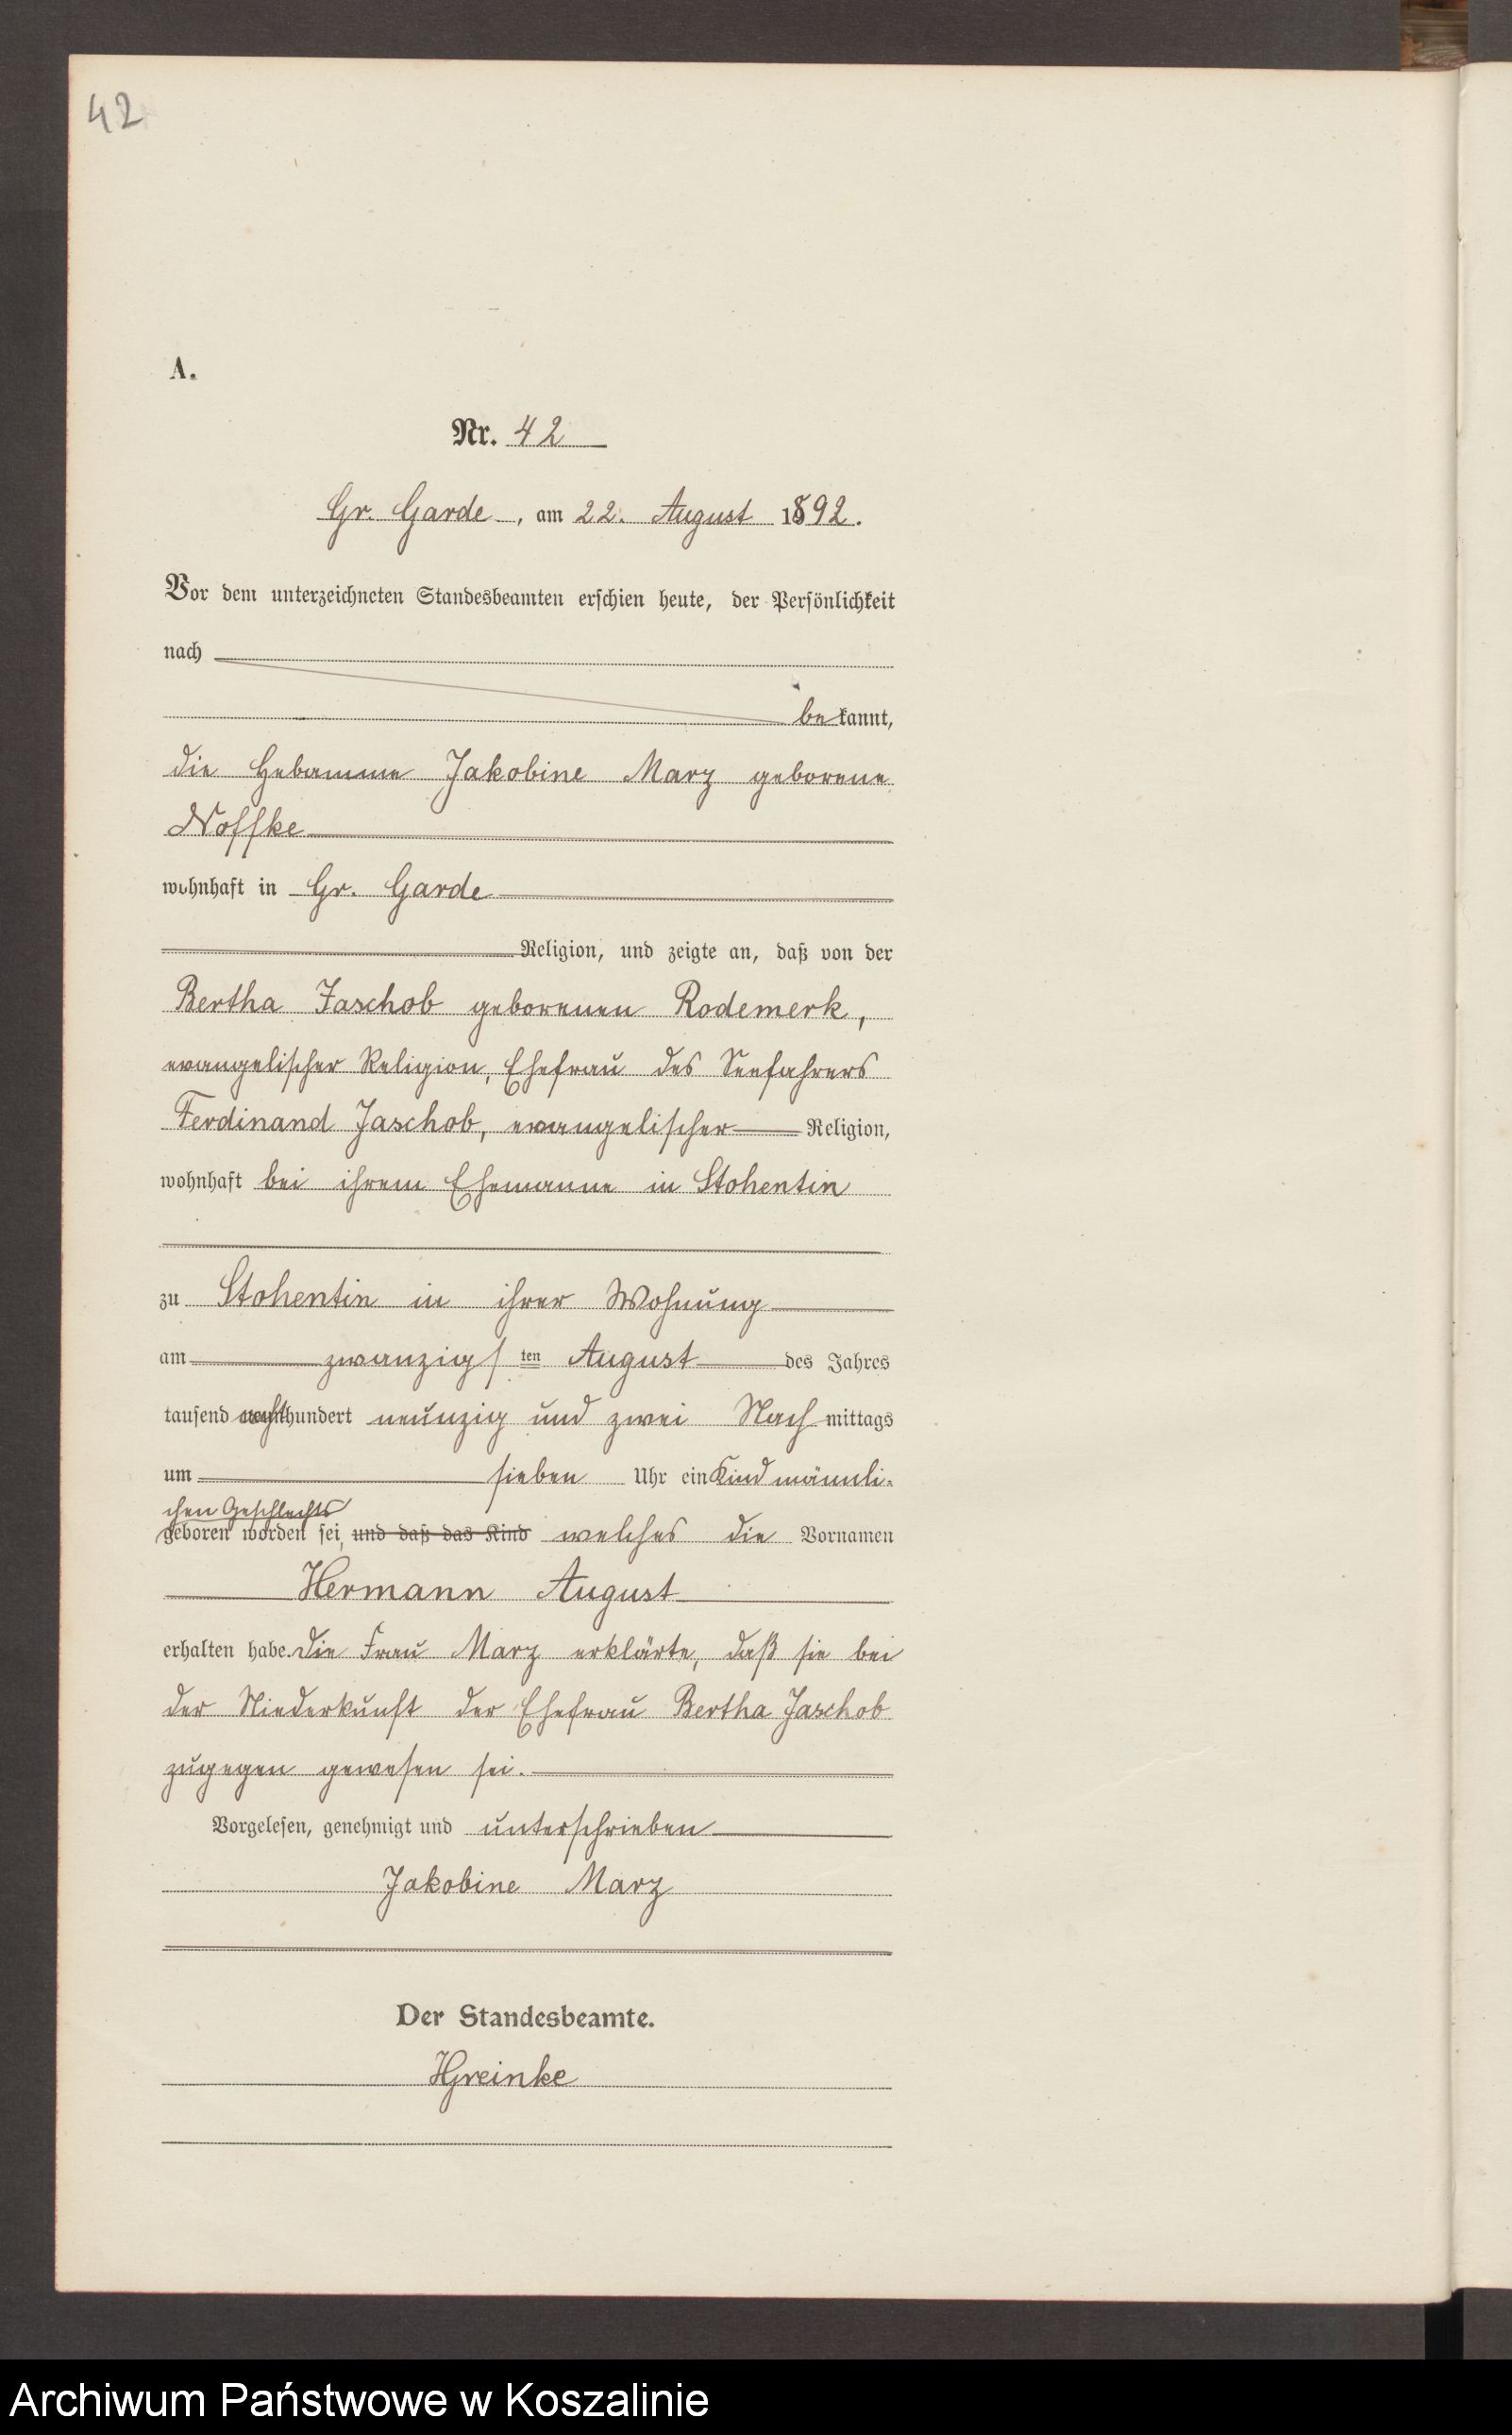 42
A.
Nr. 42
Gr. Garde, am 22. August 1892.
Vor dem unterzeichneten Standesbeamten erschien heute, der Persönlichkeit
nach
bekannt,
die Hebamme Jakobine Marz geborene
Noffke
wohnhaft in Gr. Garde
Religion, und zeigte an, daß von der
Bertha Jaschob geborenen Rodemerk,
evangelischer Religion, Ehefrau des Seefahrers
Ferdinand Jaschob, evangelischer Religion,
wohnhaft bei ihrem Ehemanne in Stohentin
zu Stohentin in ihrer Wohnung
am zwanzigsten August des Jahres
tausend achthundert neunzig und zwei Nachmittags
um sieben Uhr ein Kind männli-
chen Geschlechts
geboren worden sei, und daß das Kind welches die Vornamen
Hermann August
erhalten habe. Die Frau Marz erklärte, daß sie bei
der Niederkunft der Ehefrau Bertha Jaschob
zugegen gewesen sei.
Vorgelesen, genehmigt und unterschrieben
Jakobine Marz
Der Standesbeamte.
HGreinke
Archiwum Państwowe w Koszalinie